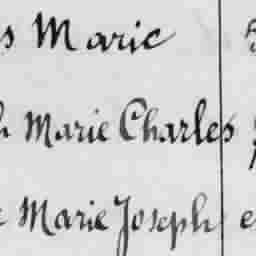 s Marie
h Marie Charles
e Marie Joseph e